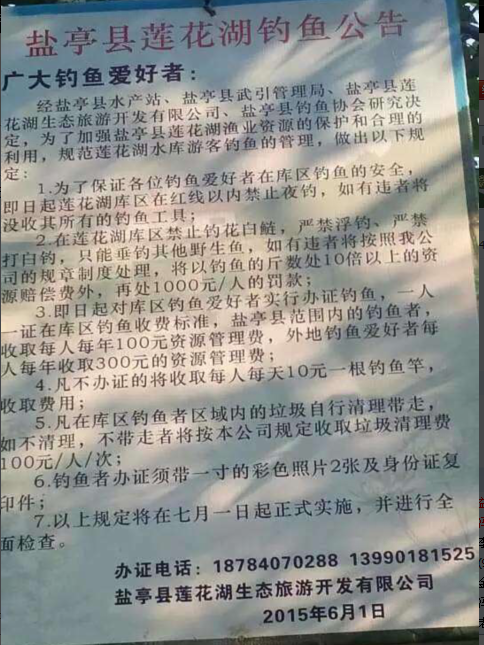 盐亭县莲花湖钓鱼公告
广大钓鱼爱好者：
经盐亭县水产站、盐亭县武引管理局、盐亭县莲
花湖生态旅游开发有限公司、盐亭县钓鱼协会研究决
定，为了加强盐亭县莲花湖渔业资源的保护和合理的
利用，规范莲花湖水库游客钓鱼的管理，做出以下规
定：
1.为了保证各位钓鱼爱好者在库区钓鱼的安全，
即日起莲花湖库区在红线以内禁止夜钓，如有违者将
没收其所有的钓鱼工具；
2.在莲花湖库区禁止钓花白鲢，严禁浮钓、严禁
打白钩，只能垂钓其他野生鱼，如有违者将按照我公
司的规章制度处理，将以钓鱼的斤数处10倍以上的资
源赔偿费外，再处1000元/人的罚款；
3.即日起对库区钓鱼爱好者实行办证钓鱼，一人
一证在库区钓鱼收费标准，盐亭县范围内的钓鱼者，
收取每人每年100元资源管理费，外地钓鱼爱好者每
人每年收取300元的资源管理费；
4.凡不办证的将收取每人每天10元一根钓鱼竿，
收取费用；
5.凡在库区钓鱼者区域内的垃圾自行清理带走，
如不清理，不带走者将按本公司规定收取垃圾清理费
100元/人/次；
6.钓鱼者办证须带一寸的彩色照片2张及身份证复
印件；
7.以上规定将在七月一日起正式实施，并进行全
面检查。
办证电话：18784070288 13990181525
盐亭县莲花湖生态旅游开发有限公司
2015年6月1日